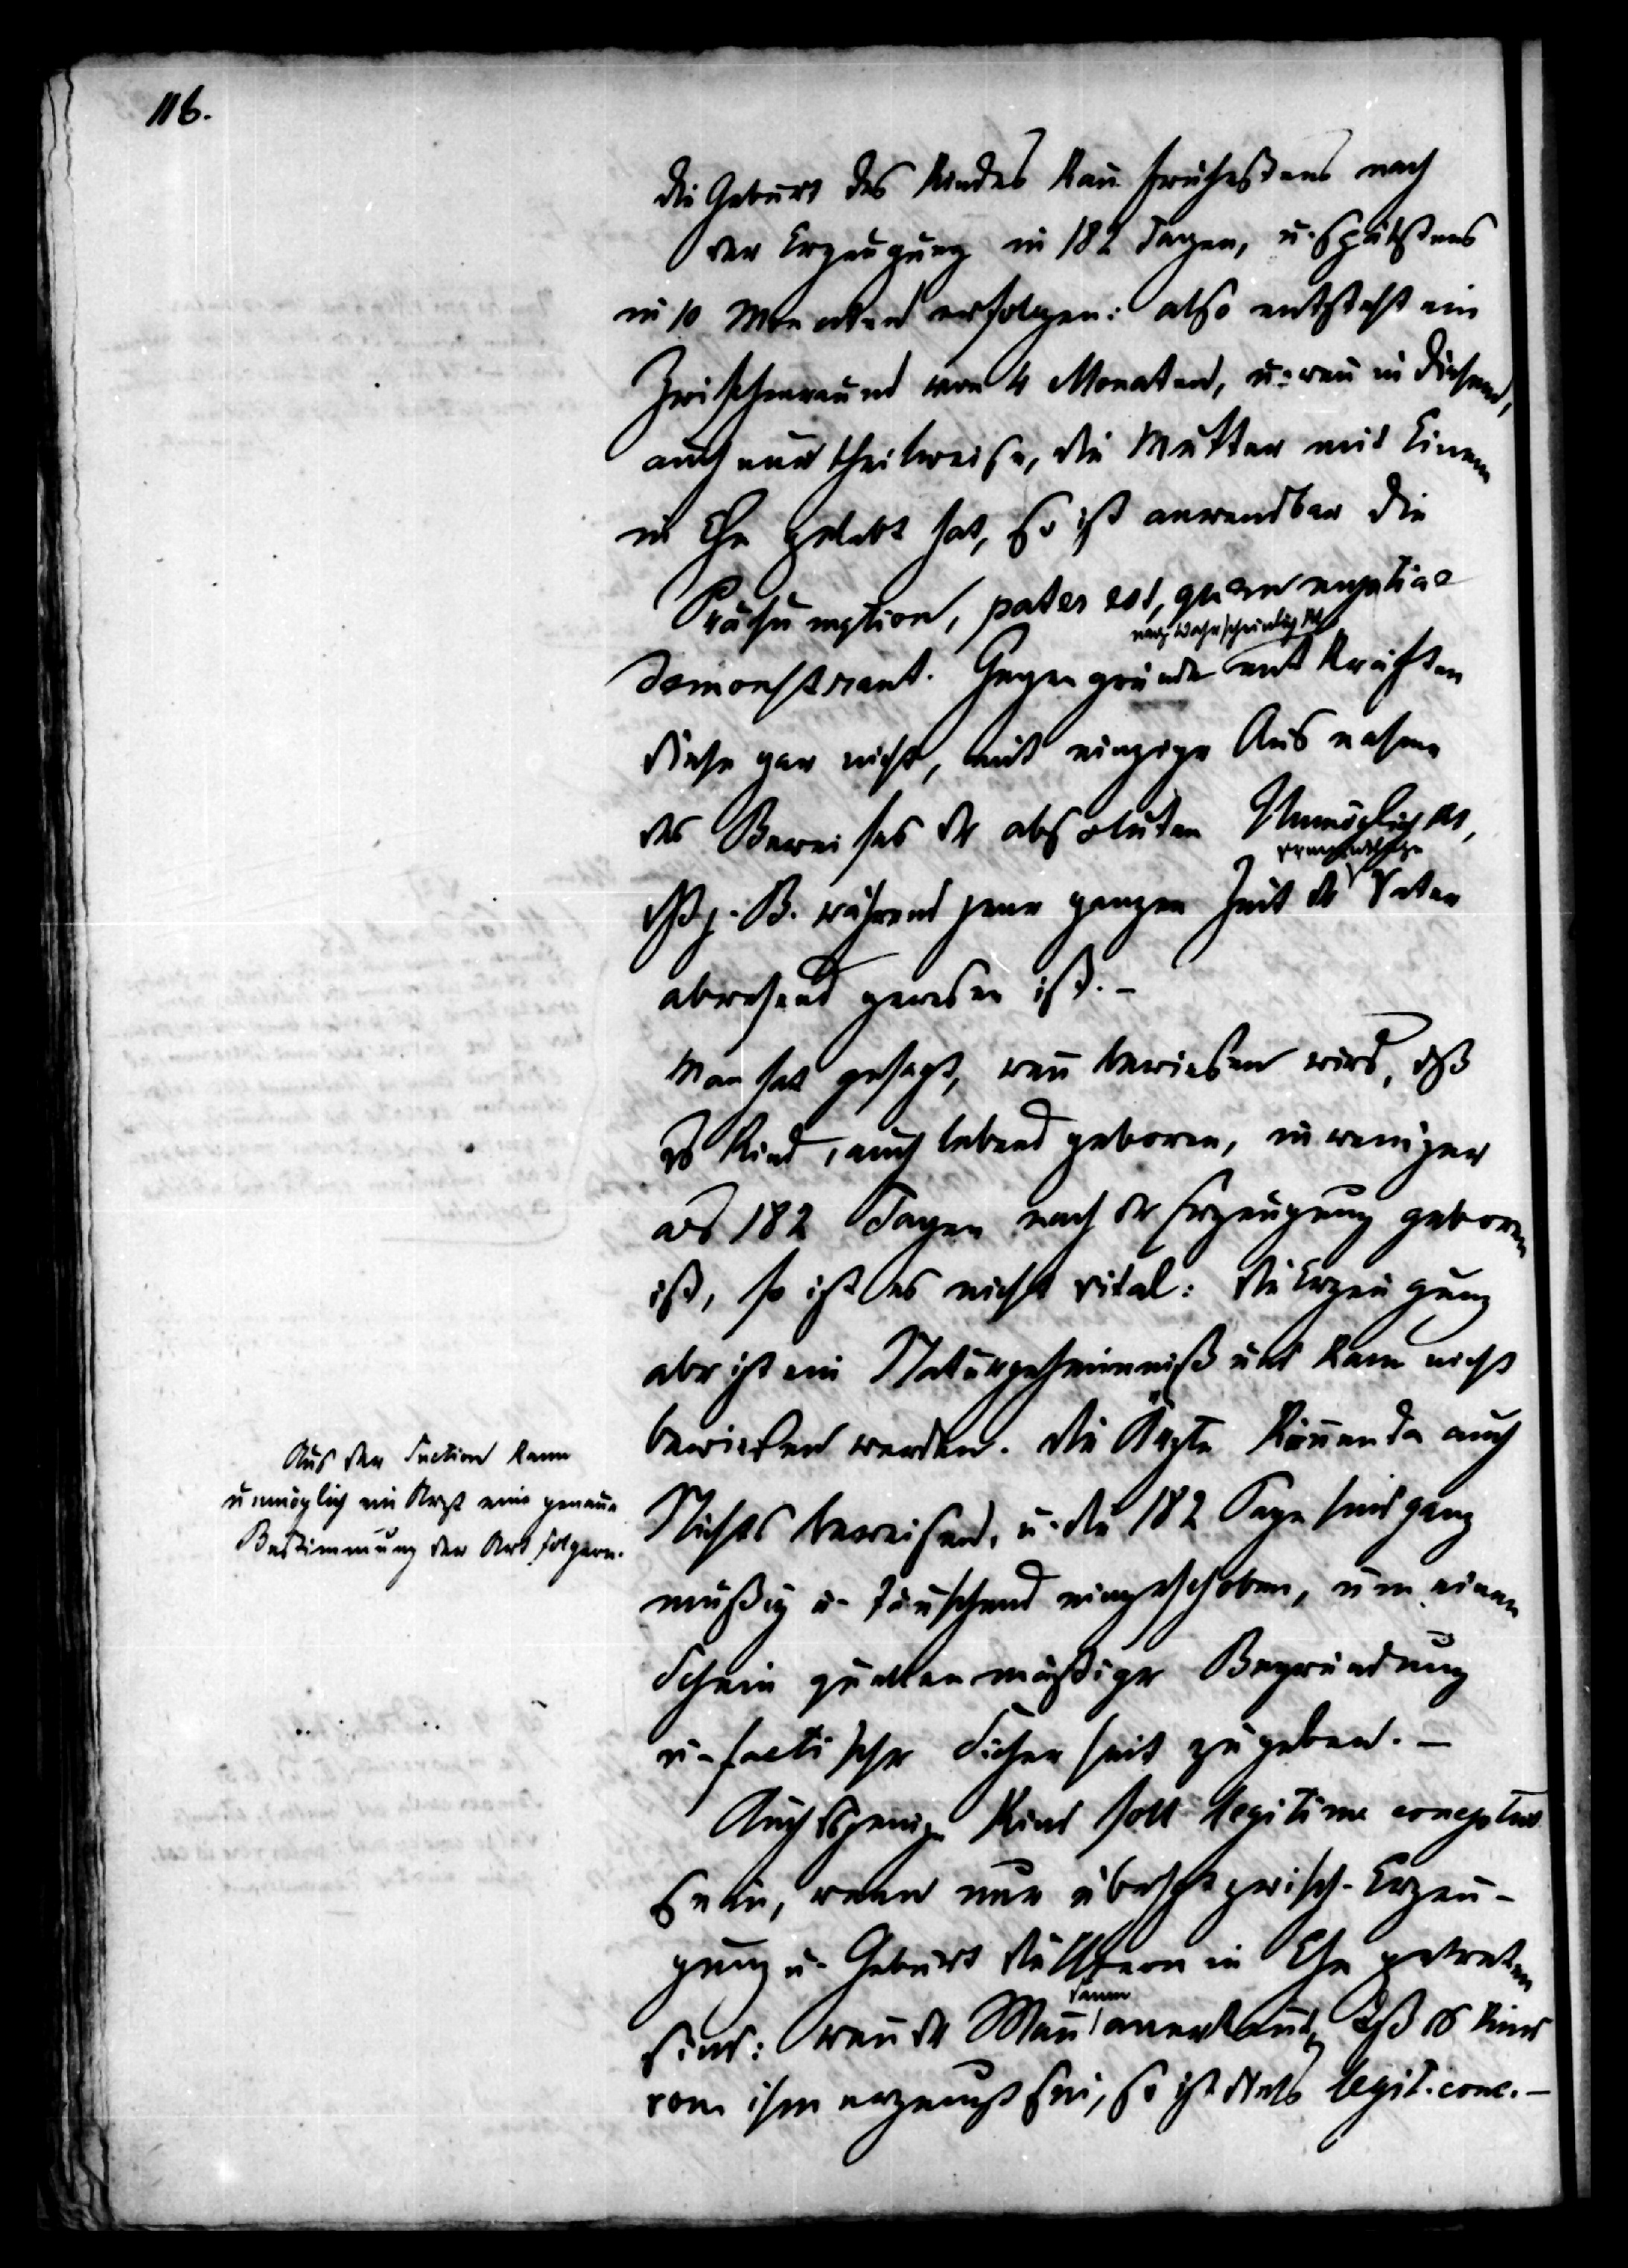 116.
die Geburt des Kindes kan̄ frühestens nach
der Erzeugung in 182 Tagen, u. spätstens
in 10 Monaten erfolgen: also entsteht ein
Zwischenraum von 4 Monaten, u. wen̄ in diesem,
auch nur theilweise, die Mutter mit Einem
in Ehe gelebt hat, so ist anwendbar die
Präsumption, pater est, quem nuptiae
nach Wahrscheinlichkt
demonstrant. Gegengründe entkräften
diese gar nicht, mit einziger Ausnahme
des Beweises der absoluten Unmöglichkt,
dß z. B. während jener ganzen Zeit der Vater
abwesend gewesen ist. –
Man hat gesagt, wen̄ bewiesen wird, dß
ds Kind, auch lebend geboren, in weniger
als 182 Tagen nach der Erzeugung geboren
ist, so ist es nicht vital: die Erzeugung
aber ist ein Naturgeheimniß und kann nicht
bewiesen werden. Die Ärzte kön̄en da auch
Nichts beweisen, u. die 182 Tage sind ganz
müßig u. täuschend eingeschoben, um einen
Schein quellenmäßiger Begründung
u. factischer Sicherheit zu geben. –
Aus der Section kann
unmöglich ein Arzt eine genaue
Bestimmung der Art folgern.
Auch dsjenige Kind soll legitime conceptus
sein, wenn nur überhpt zwisch. Erzeu-
gung u. Geburt die Eltern in Ehe getreten
sind: wen̄ der Man̄ dann anerkan̄t, dß ds Kind
von ihm erzeugt sei, so ist stets legit. conc. –